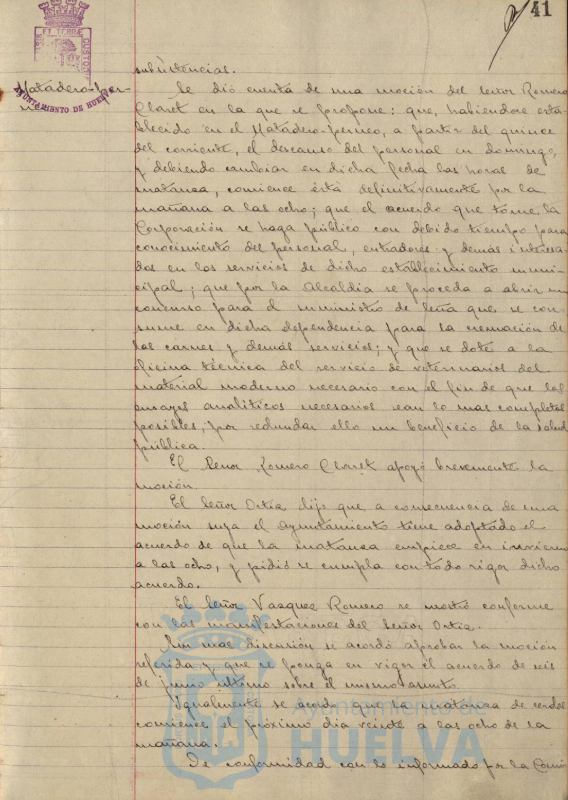 41
subsistencias.
Matadero-per-
Se dió cuenta de una moción del señor Romero
Claret en la que se propone: que, habiéndose esta-
blecido en el Matadero-perneo, a partir del quince
del corriente, el descanso del personal en domingo,
y debiendo cambiar en dicha fecha las horas de
matanza, comience ésta definitivamente por la
mañana a las ocho; que el acuerdo que tome la
Corporación se haga público con debido tiempo para
conocimiento del personal, entradores y demás interesa-
dos en los servicios de dicho establecimiento muni-
cipal; que por la Alcaldía se proceda a abrir un
concurso para el suministro de leña que se con-
sume en dicha dependencia para la cremación de
las carnes y demás servicios; y que se dote a la
oficina técnica del servicio de veterinarios del
material moderno necesario con el fin de que los
ensayos analíticos necesarios sean lo mas completos
posibles, por redundar ello en beneficio de la salud
pública.
El Señor Romero Claret apoyó brevemente la
moción.
El Señor Ortiz dijo que a consecuencia de una
moción suya el Ayuntamiento tiene adoptado el
acuerdo de que la matanza empiece en invierno
a las ocho, y pidió se cumpla con todo rigor dicho
acuerdo.
El Señor Vazquez Romero se mostró conforme
con las manifestaciones del Señor Ortiz.
Sin mas discusión se acordó aprobar la moción
referida y que se ponga en vigor el acuerdo de seis
de junio último sobre el mismo asunto.
Igualmente se acordó que la matanza de cerdos
comience el próximo dia veinte a las ocho de la
mañana.
De conformidad con lo informado por la Comi
AYUNTAMIENTO DE HUELVA
Ayuntamiento de
HUELVA